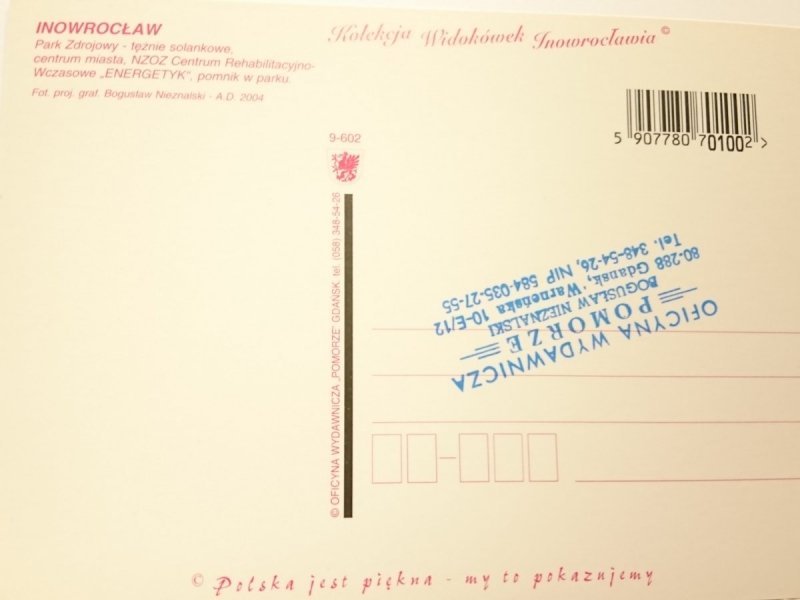 INOWROCŁAW
Park Zdrojowy - tężnie solankowe,
centrum miasta, NZOZ Centrum Rehabilitacyjno-
Wczasowe „ENERGETYK", pomnik w parku.
Fot. proj. graf. Bogusław Nieznalski - A.D. 2004
Kolekcja Widokówek Inowrocławia ©
5 907780 701002 >
9-602
© OFICYNA WYDAWNICZA „POMORZE" GDAŃSK tel. (058) 348-54-26
OFICYNA WYDAWNICZA
POMORZE
BOGUSŁAW NIEZNALSKI
80-288 Gdańsk, Warneńska 10-E/12
Tel. 348-54-26, NIP 584-035-27-55
© Polska jest piękna - my to pokazujemy